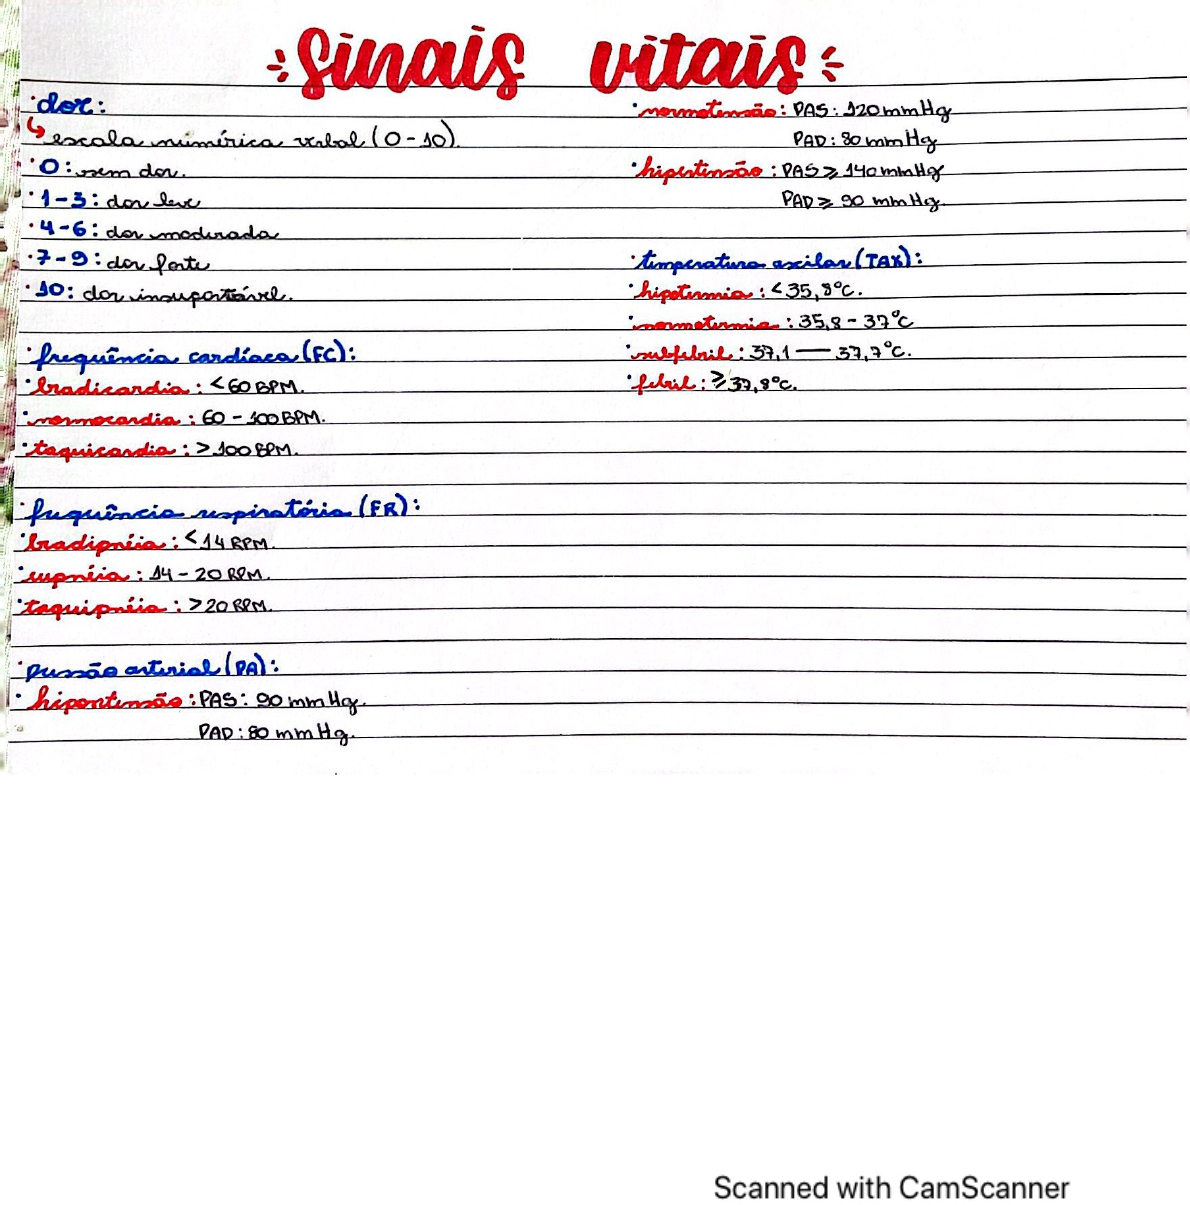 sinais vitais
· dor:
↳ escala numérica verbal (0-10).
· 0: sem dor.
· 1-3: dor leve
· 4-6: dor moderada
· 7-9: dor forte
· 10: dor insuportável.
· frequência cardíaca (FC):
· bradicardia: < 60 BPM.
· normocardia: 60 - 100 BPM.
· taquicardia: > 100 BPM.
· frequência respiratória (FR):
· bradipnéia: < 14 RPM.
· eupnéia: 14 - 20 RPM.
· taquipnéia: > 20 RPM.
· pressão arterial (PA):
· hipontensão: PAS: 90 mmHg.
PAD: 80 mmHg.
· normotensão: PAS: 120 mmHg
PAD: 80 mmHg
· hipertensão: PAS ≥ 140 mmHg
PAD ≥ 90 mmHg.
· temperatura axilar (TAX):
· hipotermia: < 35,8°C.
· normotermia: 35,8 - 37°C
· subfebril: 37,1 — 37,7°C.
· febril: ≥ 37,8°C.
Scanned with CamScanner